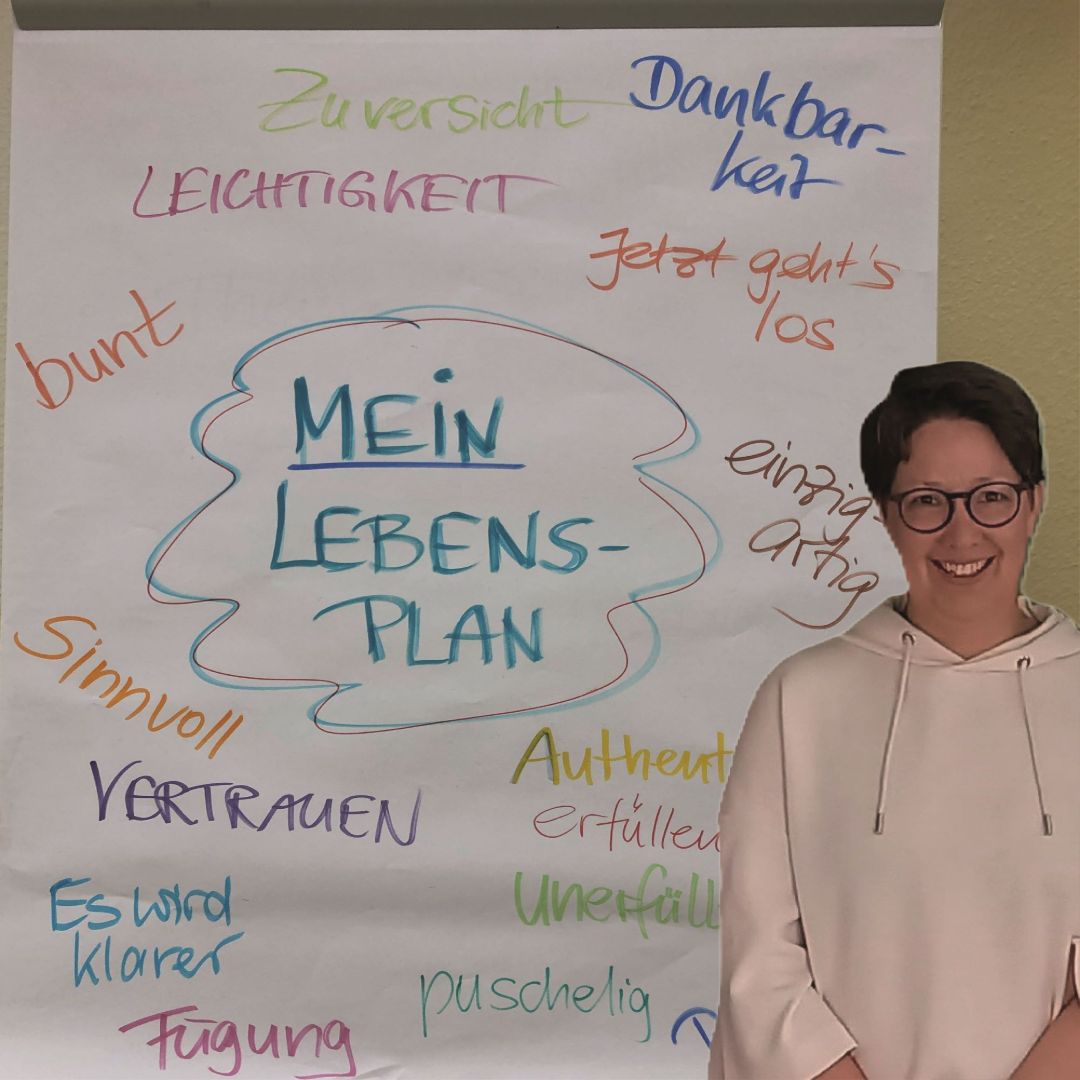 Zuversicht
Dankbar-
keit
LEICHTIGKEIT
Jetzt geht's
los
bunt
MEIN
LEBENS-
PLAN
einzig-
artig
Sinnvoll
VERTRAUEN
Authent
erfüllen
Unerfüll
Es wird
klarer
puschelig
Fügung